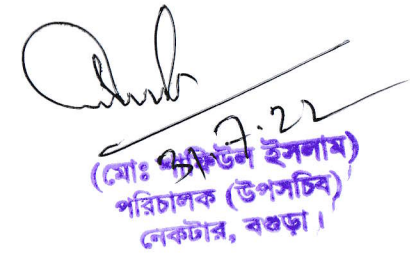 31.7.22
(মোঃ শাফিউল ইসলাম)
পরিচালক (উপসচিব)
নেকটার, বগুড়া।